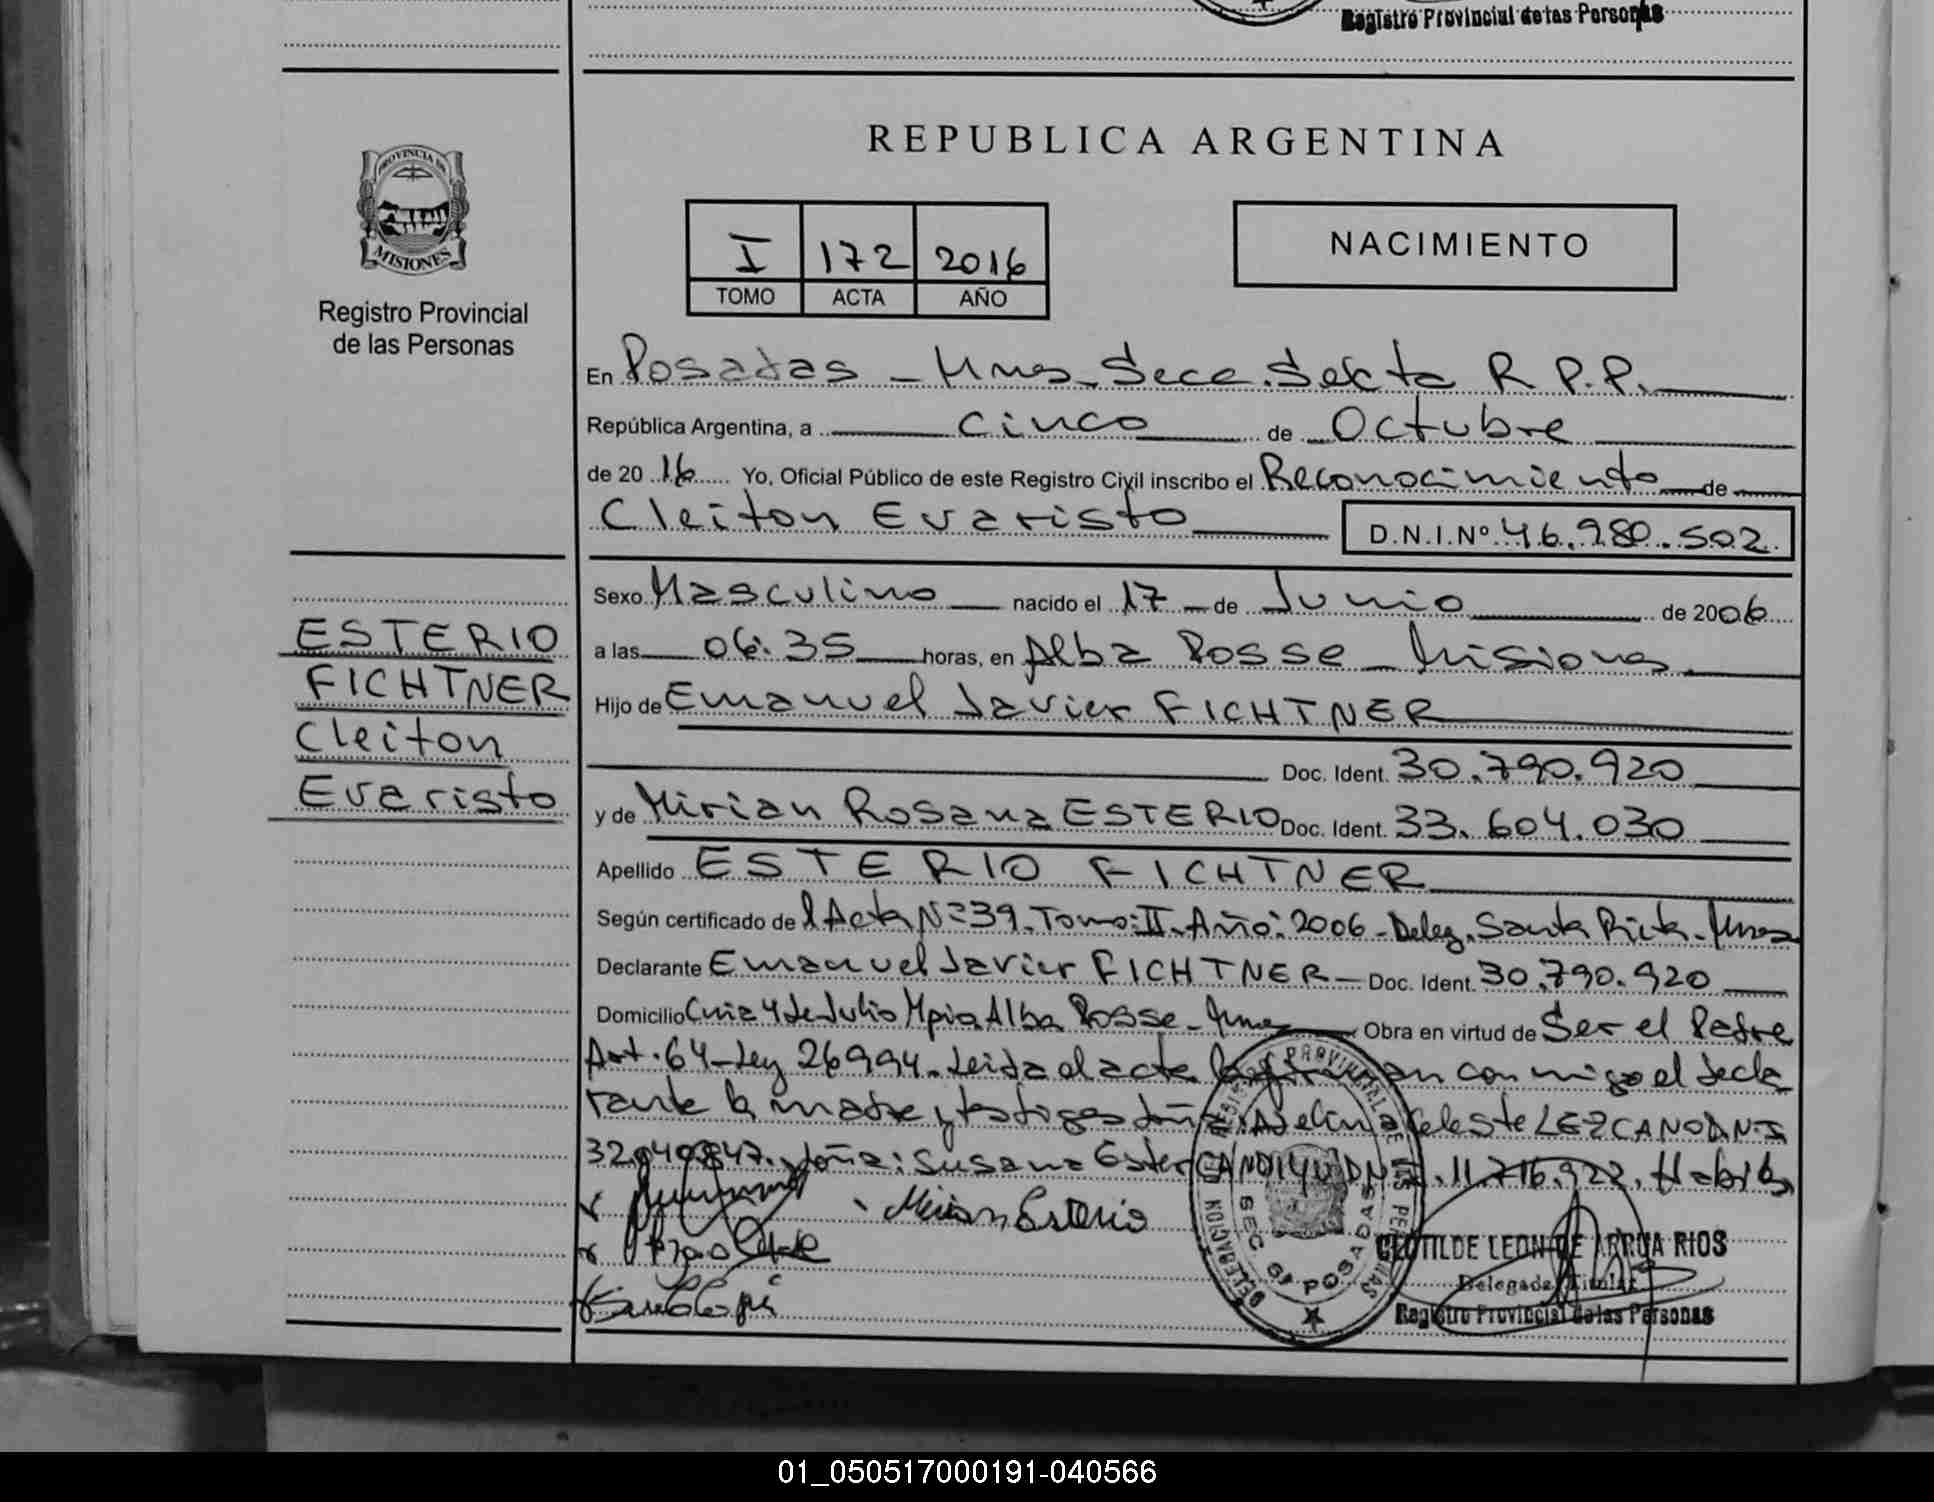 Registro Provincial de las Personas
REPUBLICA ARGENTINA
PROVINCIA DE
MISIONES
Registro Provincial
de las Personas
I 172 2016
TOMO ACTA AÑO
NACIMIENTO
En Posadas - Mnes. Secc. Sexta R.P.P.
República Argentina, a cinco de Octubre
de 2016 Yo, Oficial Público de este Registro Civil inscribo el Reconocimiento de
Cleiton Evaristo D.N.I.Nº 46.980.502
Sexo Masculino nacido el 17 de Junio de 2006
a las 06:35 horas, en Alba Posse - Misiones
Hijo de Emanuel Javier FICHTNER
Doc. Ident. 30.790.920
y de Mirian Rosana ESTERIO Doc. Ident. 33.604.030
Apellido ESTERIO FICHTNER
Según certificado de l Acta Nº 39. Tomo: II. Año: 2006 - Deleg. Santa Rita - Mnes
Declarante Emanuel Javier FICHTNER - Doc. Ident. 30.790.920
Domicilio 4 de Julio Mpio Alba Posse - Mnes Obra en virtud de Ser el Padre
Art. 64 - Ley 26994. Leida el acta la firman conmigo el decla
rante la madre y testigos doña: Adelina Celeste LEZCANO DNI
y doña: Susana Ester CANDIYU DNI. 11.716.922. Habiles
ESTERIO
FICHTNER
Cleiton
Evaristo
Mirian Esterio
DELEGACION REGISTRO PROVINCIAL DE LAS PERSONAS
SEC 6ª POSADAS
CLOTILDE LEON DE ARRUA RIOS
Delegada Titular
Registro Provincial de las Personas
01_050517000191-040566